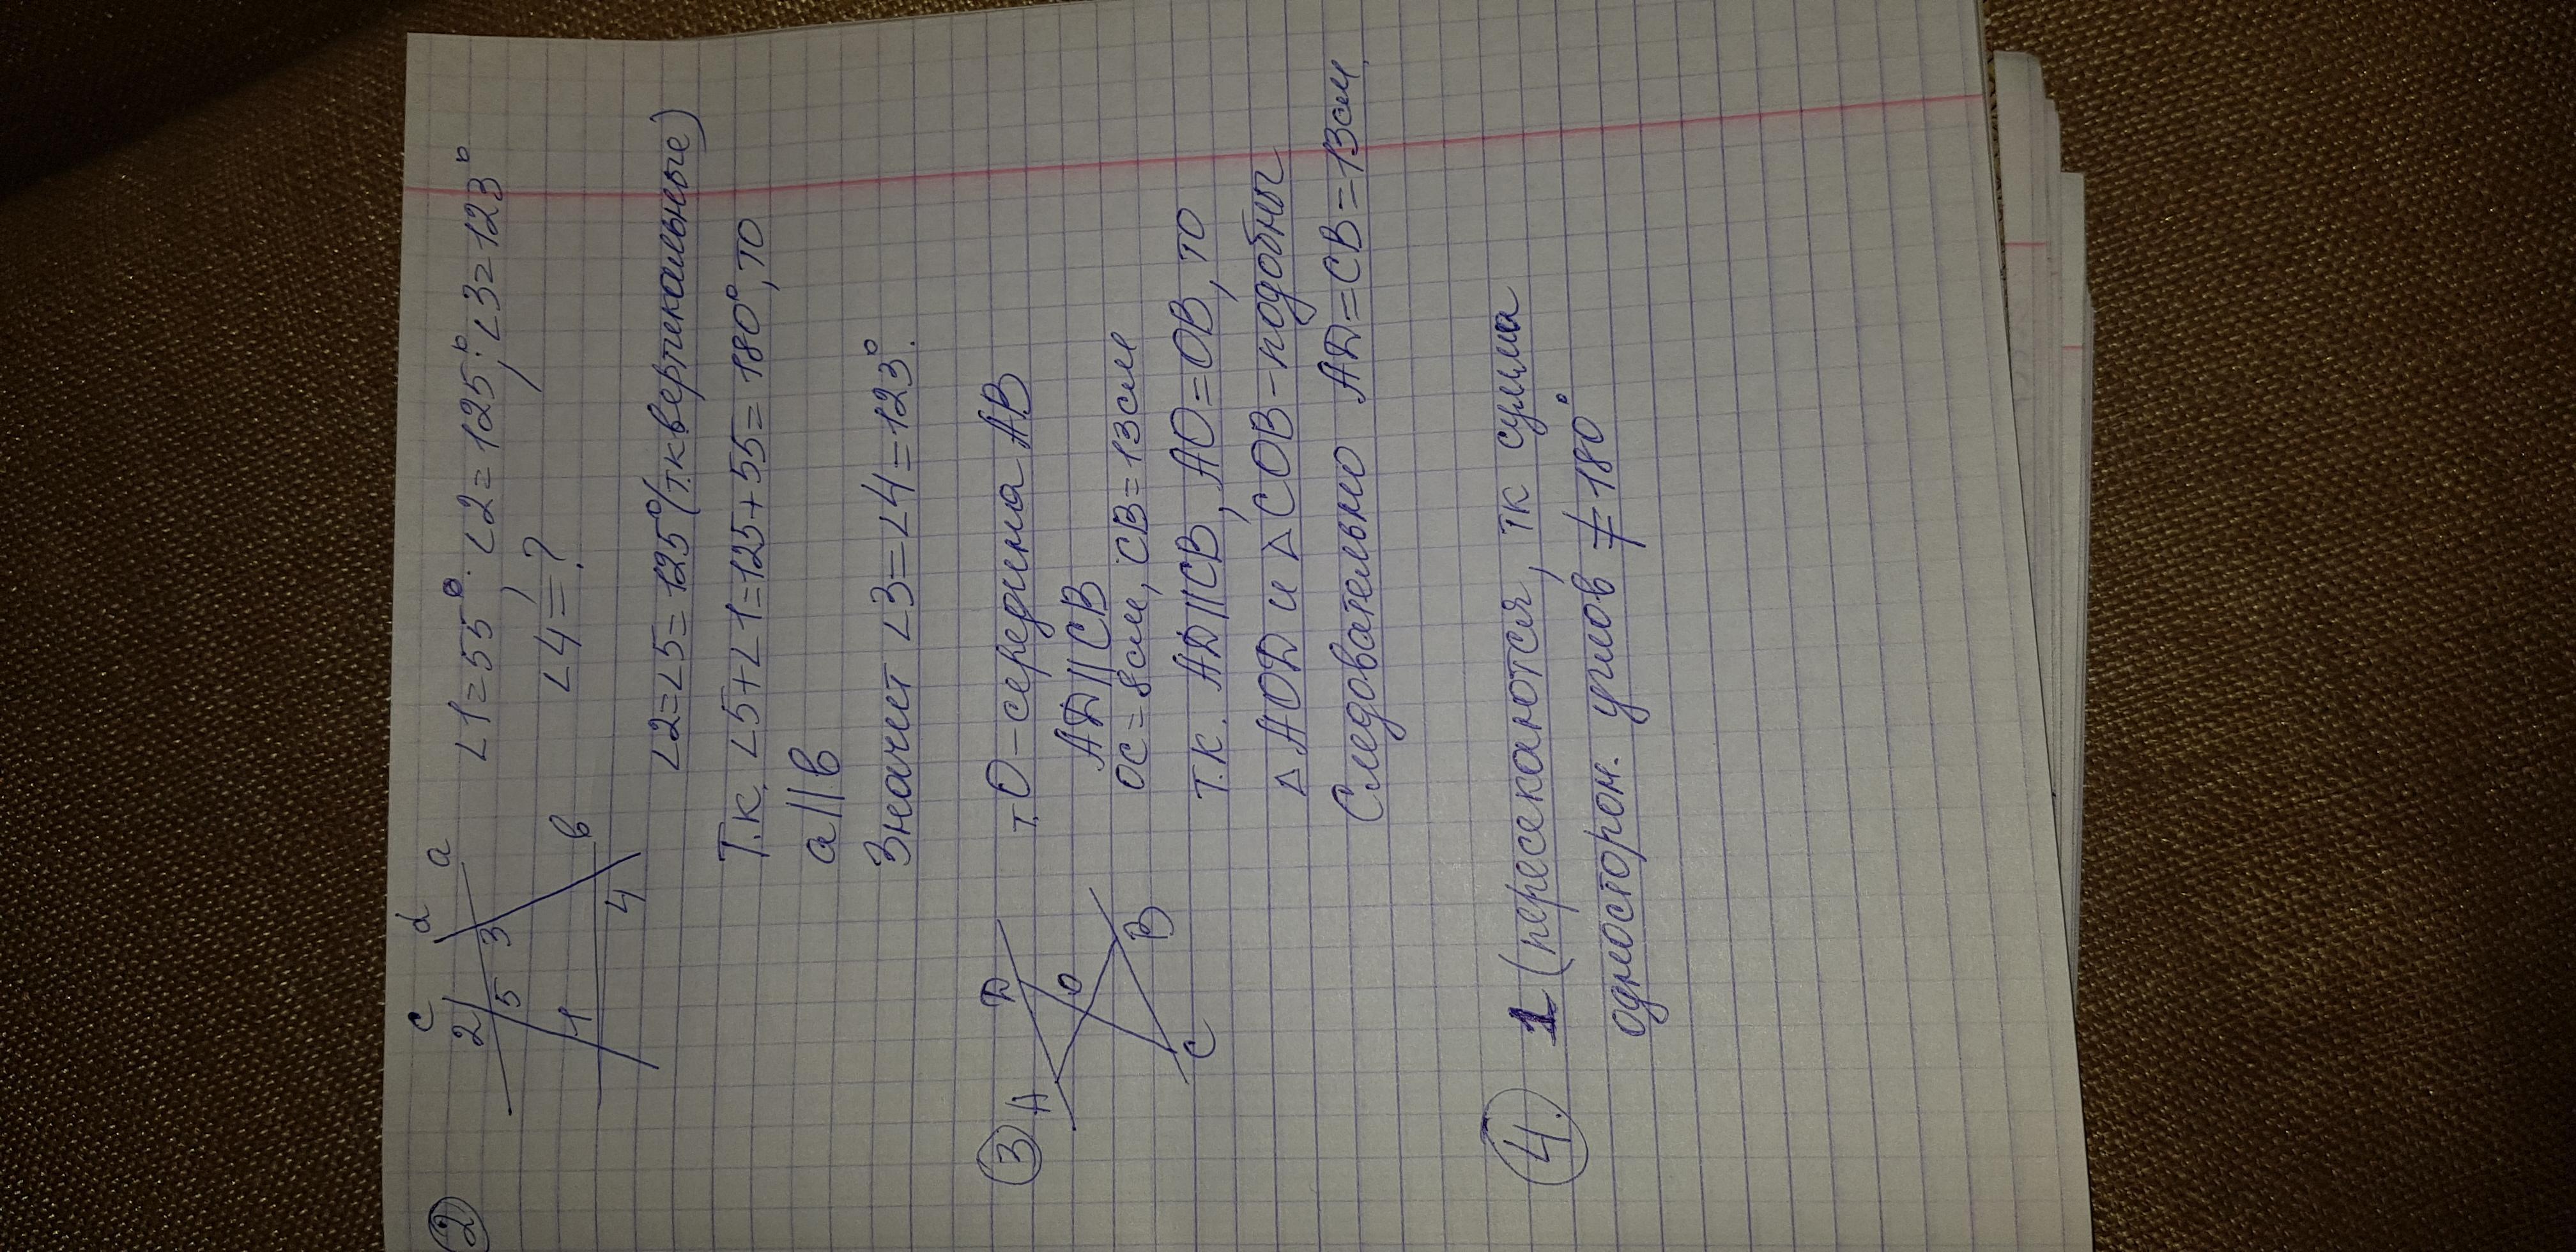 2
c d a
2 5 3
1 4 в
∠1=55°. ∠2=125°; ∠3=123°
∠4=?
∠2=∠5=125°(т.к вертикальные)
Т.к. ∠5+∠1=125+55=180°, то
a||в
Значит ∠3=∠4=123°.
3
A D
O
C B
т.О-середина АВ
АD||СВ
ОС=8см, СВ=13см
т.к. АD||СВ, АО=ОВ, то
△АОD и △СОВ-подобны
Следовательно АD=СВ=13см
4. 1 (пересекаются, тк сумма
односторон. углов ≠180°